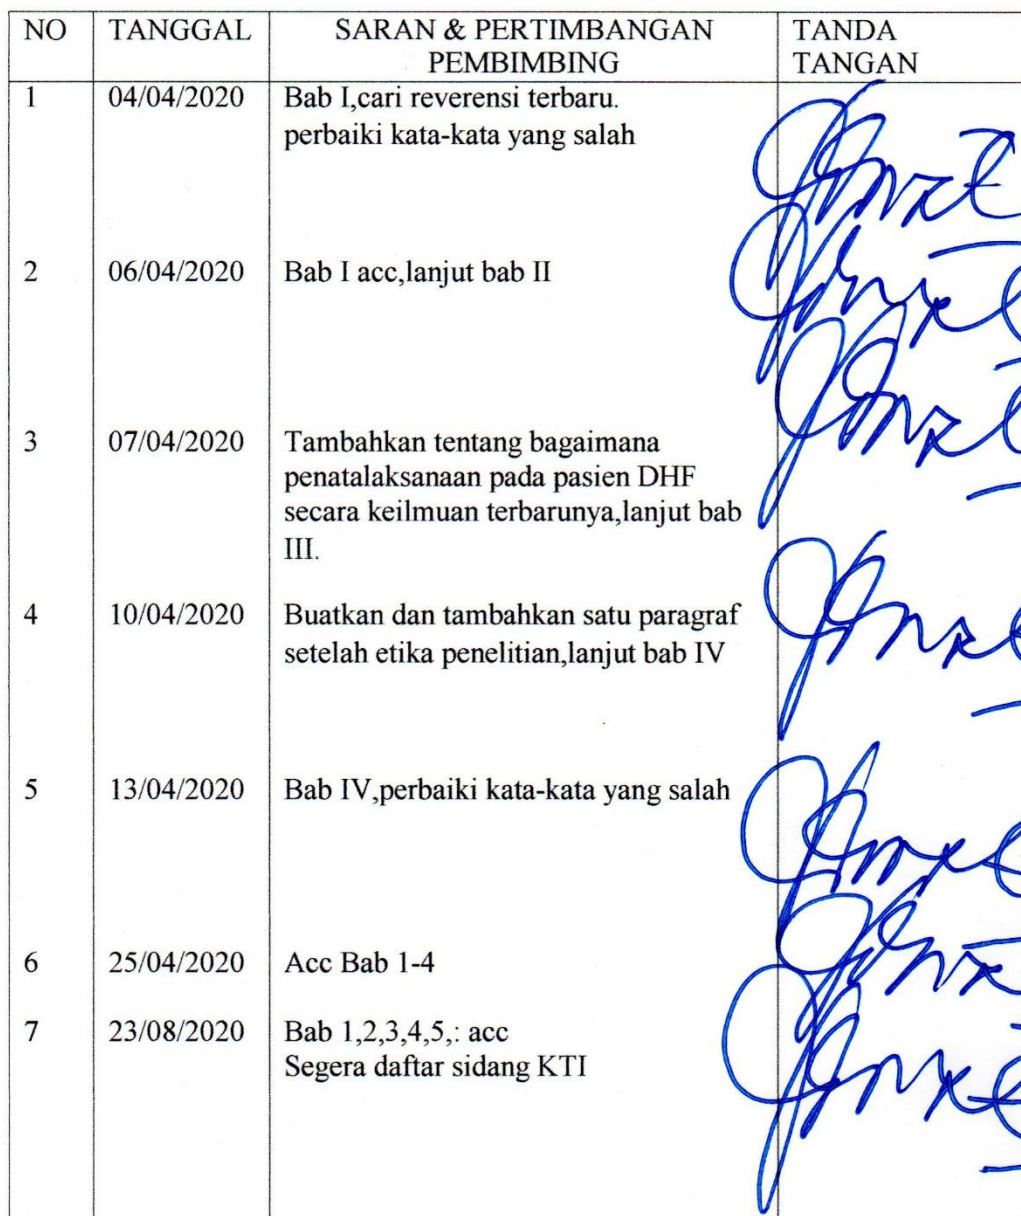 NO TANGGAL SARAN & PERTIMBANGAN TANDA
PEMBIMBING TANGAN
1 04/04/2020 Bab I,cari reverensi terbaru.
perbaiki kata-kata yang salah
2 06/04/2020 Bab I acc,lanjut bab II
3 07/04/2020 Tambahkan tentang bagaimana
penatalaksanaan pada pasien DHF
secara keilmuan terbarunya,lanjut bab
III.
4 10/04/2020 Buatkan dan tambahkan satu paragraf
setelah etika penelitian,lanjut bab IV
5 13/04/2020 Bab IV,perbaiki kata-kata yang salah
6 25/04/2020 Acc Bab 1-4
7 23/08/2020 Bab 1,2,3,4,5,: acc
Segera daftar sidang KTI